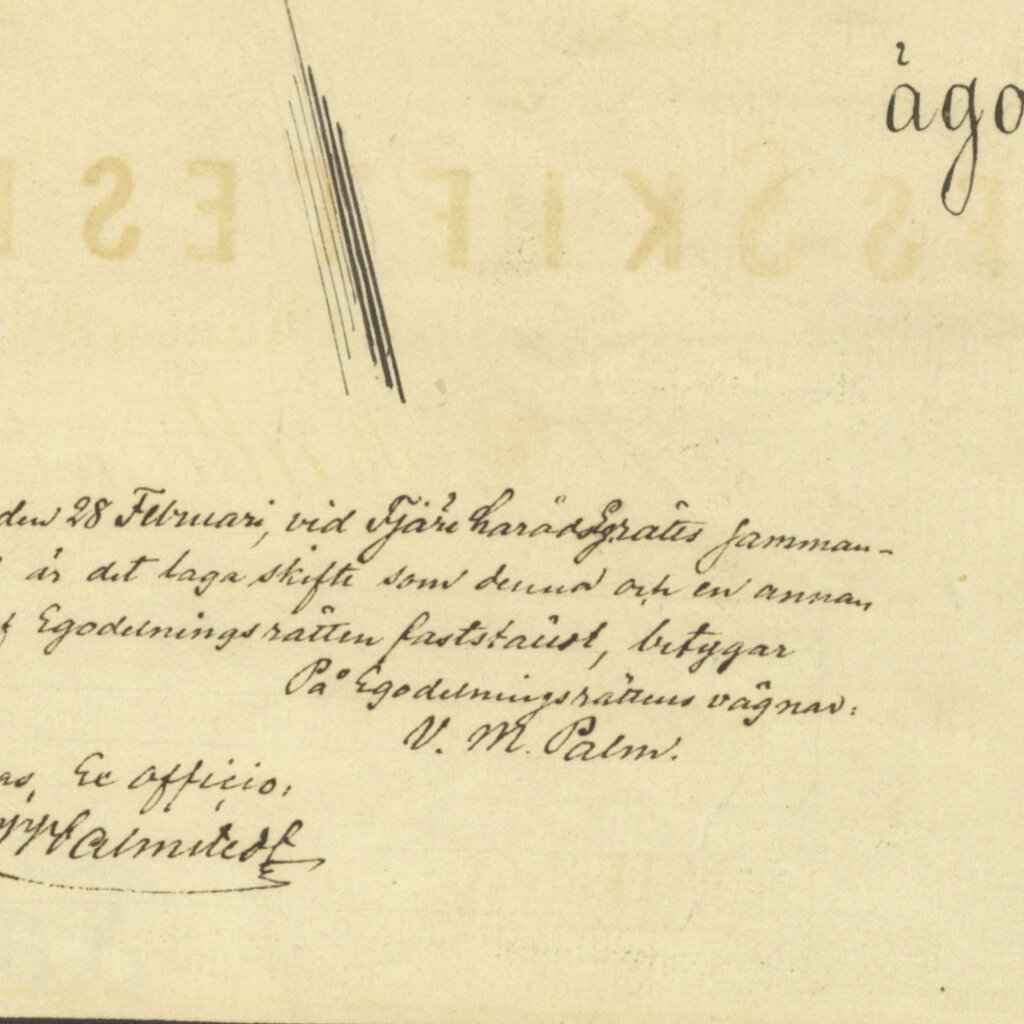 ägo
den 28 Februari, vid Fjäre häradsrätts samman-
är det laga skifte som denna och en annan
Egodelningsrätten fastställt, betygar
På Egodelningsrättens vägnar:
V. M. Palm.
Ex officio:
Palmstedt